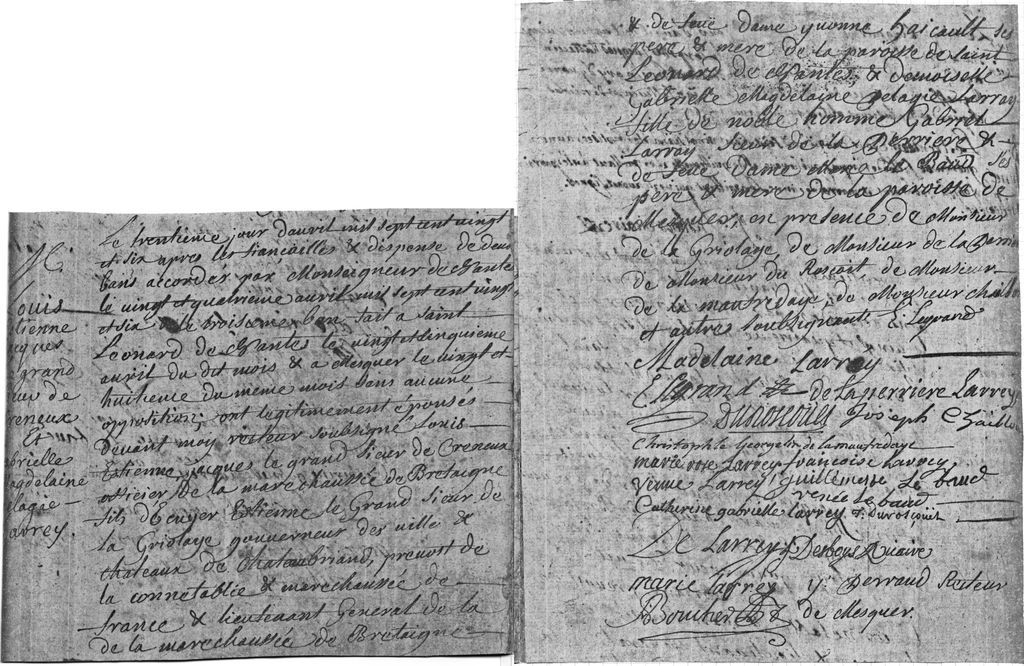 M.
Louis
Etienne
Jacques
le grand
sieur de
Creneux
Et
Gabrielle
Magdelaine
Pelagie
Larrey.
Le trentieme jour d'avril mil sept cent vingt
et six apres les fiancailles & dispense de deux
bans accordez par Monseigneur de Nantes
le vingt et quatrieme avril mil sept cent vingt
et six & le troisieme ban fait a Saint
Leonard de Nantes le vingt et cinquieme
avril du dit mois & a Mesquer le vingt et
huitieme du meme mois sans aucune
opposition; ont legitimement épousés
devant moy recteur soubsigné Louis
Estienne, jacques le grand Sieur de Creneux
officier de la marechaussée de Bretaigne
fils d'Ecuyer Estienne le Grand Sieur de
la Griolaye gouverneur des ville &
chateaux de Chateaubriand, prevost de
la connetablie & marechaussée de
france & lieutenant General de la
de la marechaussée de Bretaigne
& de feue dame yvonne hascault ses
pere & mere de la paroisse de Saint
Leonard de Nantes, & demoiselle
Gabrielle Magdelaine pelagie Larray
fille de noble homme Gabriel
Larray Sieur de la Perriere &
de feue Dame Marie le Baud Ses
pere & mere de la paroisse de
Mesquer, en presence de Monsieur
de la Griolaye de Monsieur de la
de Monsieur du Roscoit de Monsieur
de la maufridaye, de Monsieur
et autres soubsignants E: Legrand
Madelaine Larrey
E Legrand de Laperriere Larrey
Joseph
Christophle Georgelin de lamaufredaye
marie rose Larrey françoise Larrey
veuve Larrey, guillemette Le baud
renée Le baud
Catherine gabrielle Larrey F. Duroscoüit
De Larrey Desboys Nuaire
marie larrey Y Derraud Recteur
Boucher de Mesquer.